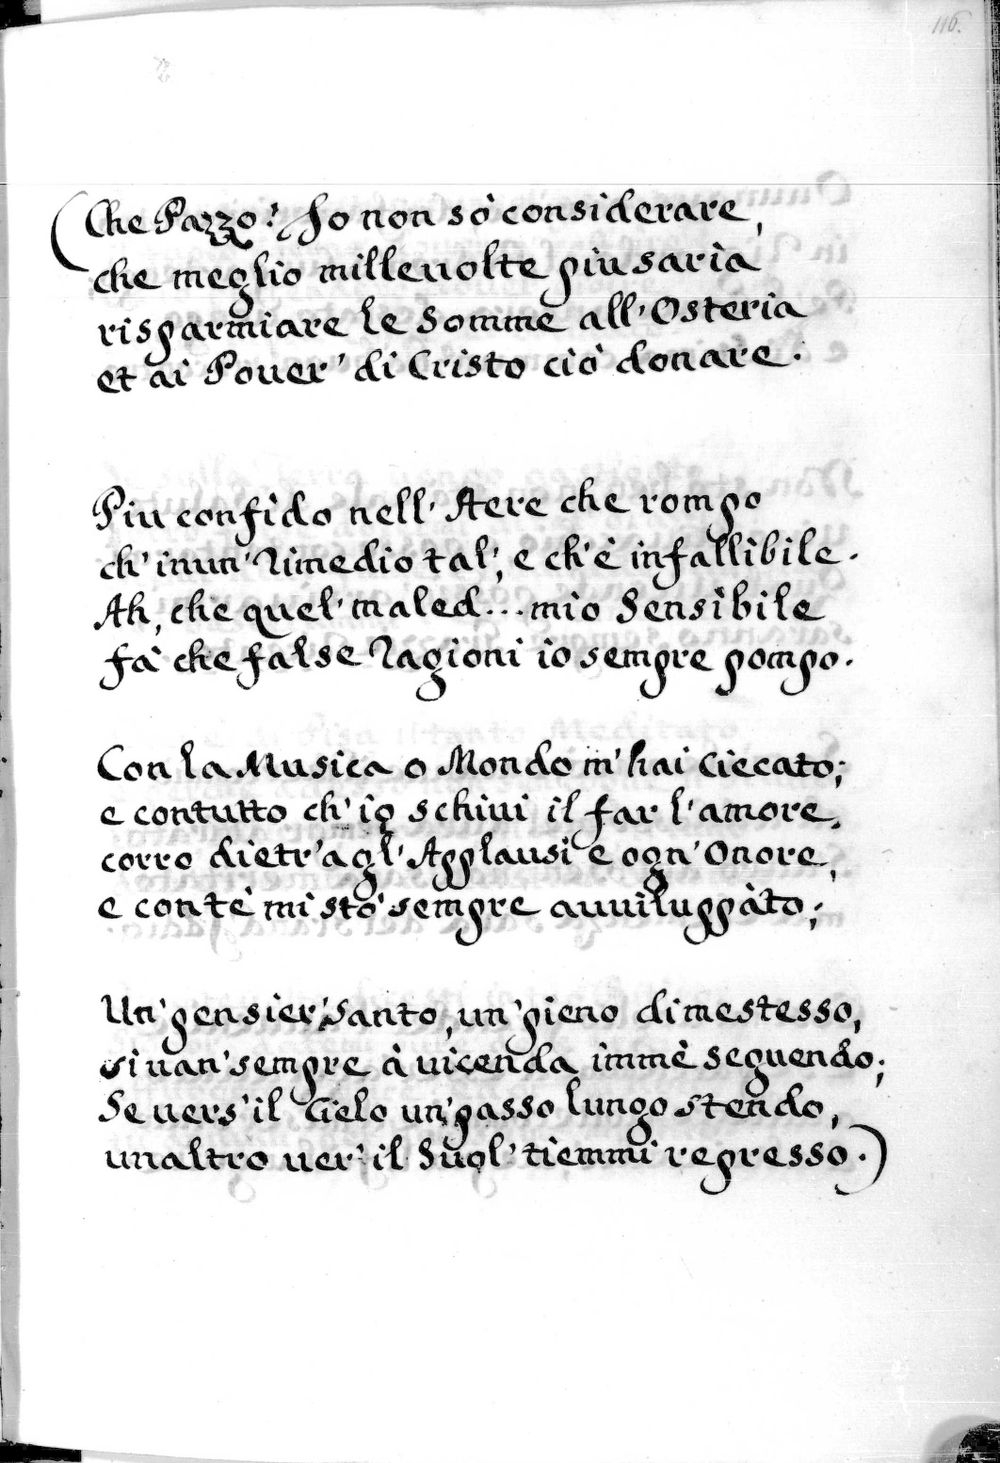 116.
(Che Pazzo! Io non sò considerare,
che meglio millevolte più sarìa
risparmiare le Somme all' Osteria
et ai Pover' di Cristo ciò donare.
Piu confido nell' Aere che rompo
ch' inun' Rimedio tal', e ch' è infallibile.
Ah, che quel' maled... mio Sensibile
fà che false Ragioni io sempre pompo.
Con la Musica o Mondo m' hai Ciecato;
e contutto ch' io schivi il far l' amore,
corro dietr' agl' Applausi e ogn' Onore,
e contè mi stò sempre avviluppàto;
Un' pensier' Santo, un' pieno dimestesso,
si van' sempre à vicenda immè seguendo;
Se vers' il Cielo un' passo lungo stendo,
unaltro ver' il Suol' tiemmi regresso.)